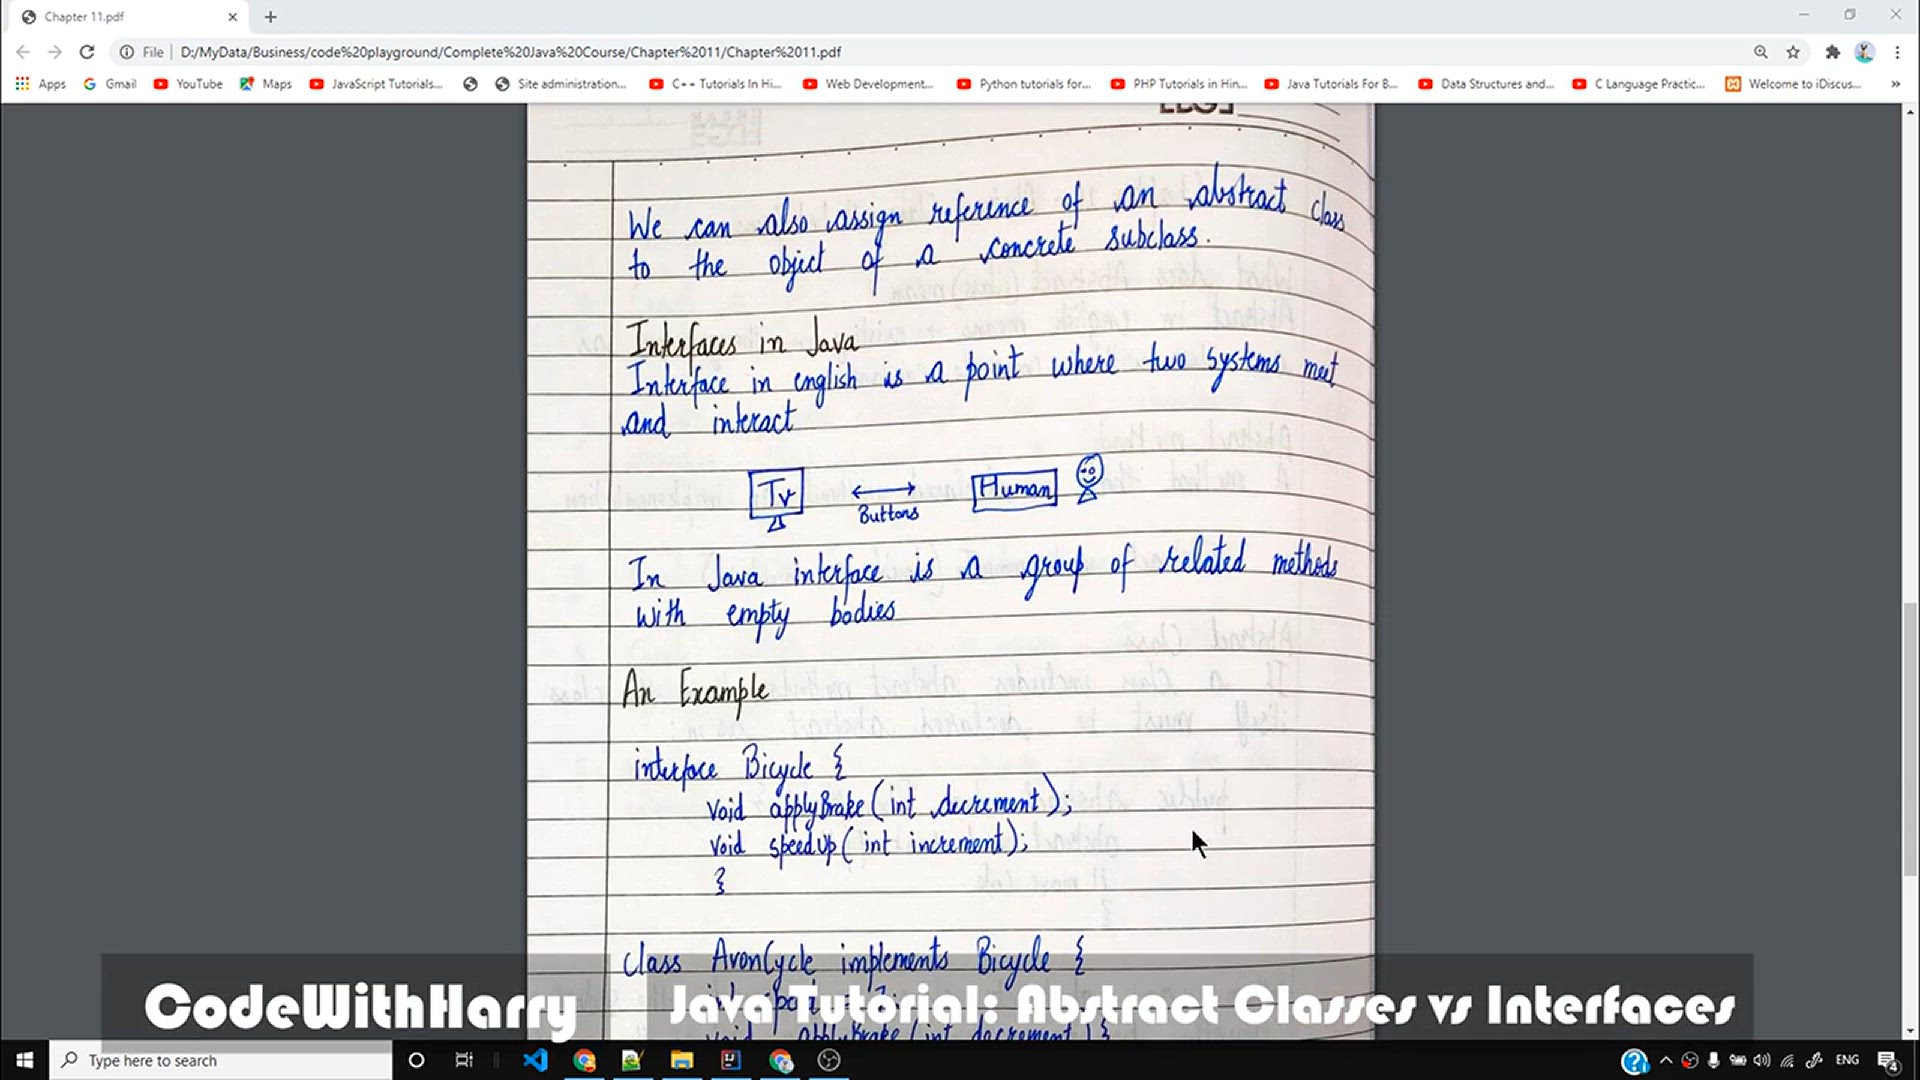 Chapter 11.pdf
File | D:/MyData/Business/code%20playground/Complete%20Java%20Course/Chapter%2011/Chapter%2011.pdf
Apps Gmail YouTube Maps JavaScript Tutorials... Site administration... C++ Tutorials In Hi... Web Development... Python tutorials for... PHP Tutorials in Hin... Java Tutorials For B... Data Structures and... C Language Practic... Welcome to iDiscus... »
We can also assign reference of an abstract class
to the object of a concrete subclass.
Interfaces in Java
Interface in english is a point where two systems meet
and interact
Tv Buttons Human
In Java interface is a group of related methods
with empty bodies
An Example
interface Bicycle {
void applyBrake (int decrement);
void speedUp (int increment);
}
class AvonCycle implements Bicycle {
void applyBrake (int decrement) {
CodeWithHarry Java Tutorial: Abstract Classes vs Interfaces
Type here to search
ENG
4